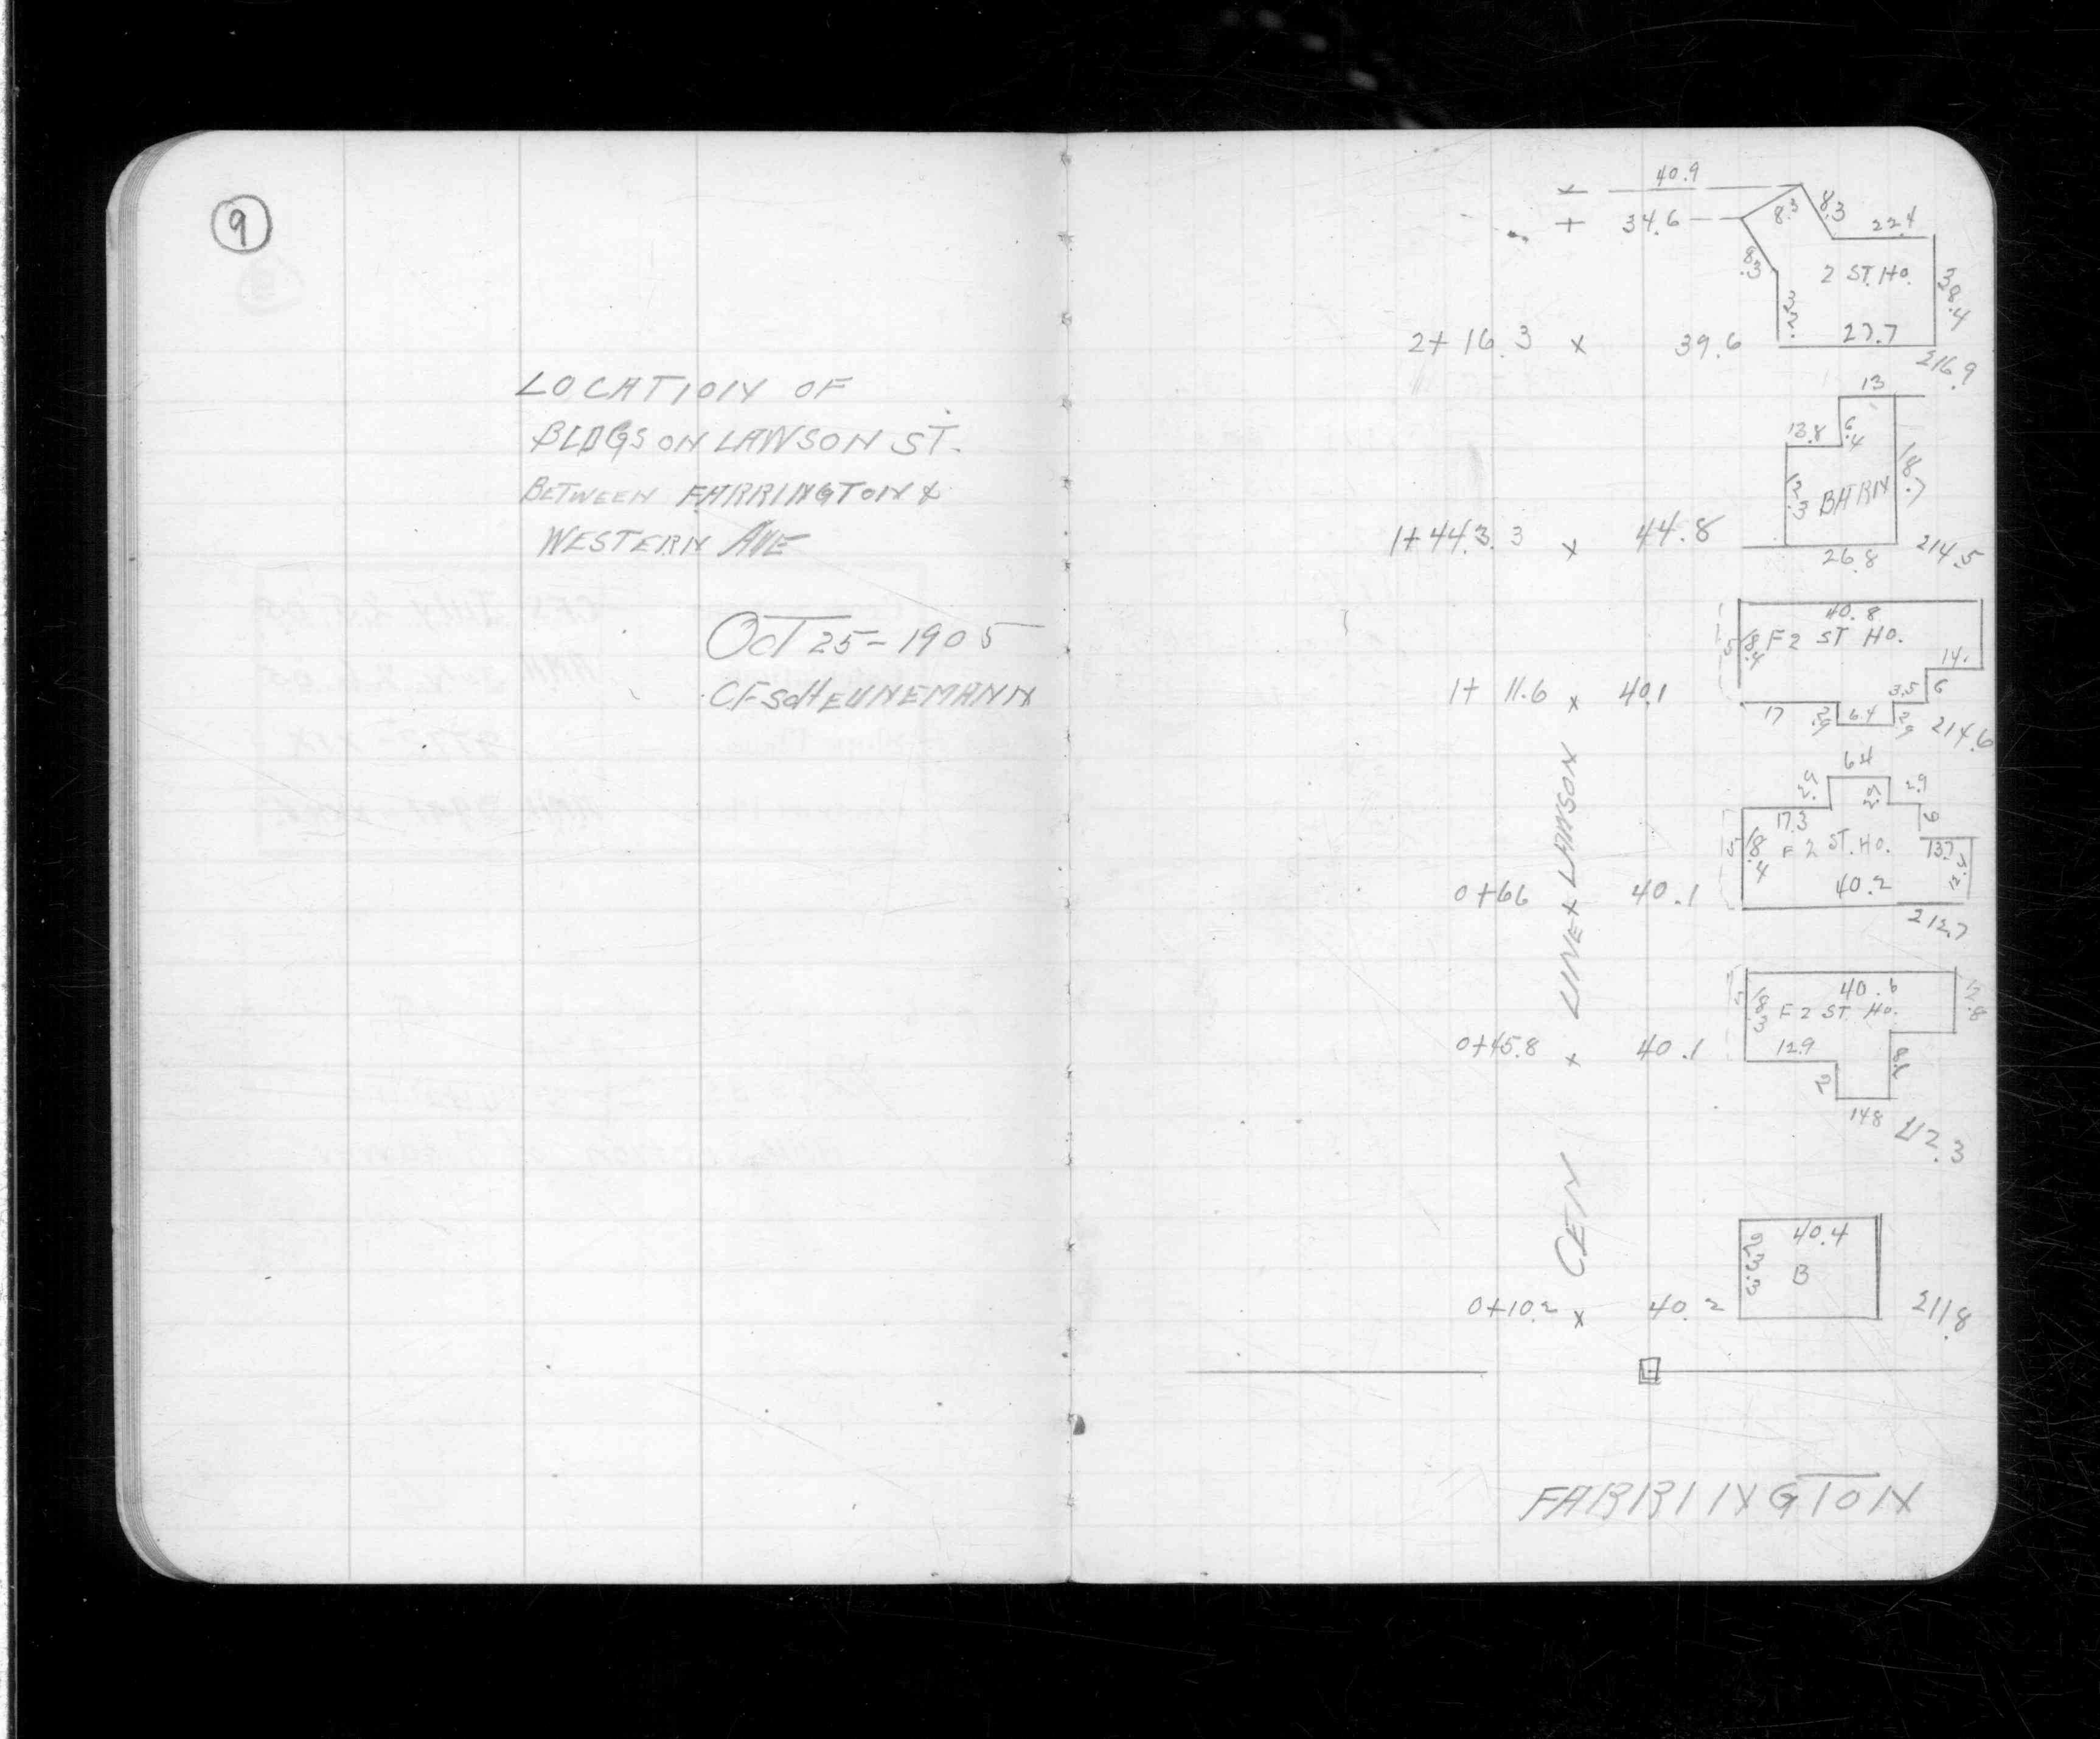 9
LOCATION OF
BLDGS ON LAWSON ST.
BETWEEN FARRINGTON &
WESTERN AVE
OCT 25-1905
CF SCHEUNEMANN
40.9
+ 34.6
8.3 8.3 22.4
8.3
2 ST. HO.
38.4
27.7
2+16.3 x 39.6
216.9
13
13.8 6.4
18.7
BARN
1+44.3 x 44.8
26.8 214.5
40.8
5 18.4 F 2 ST HO.
14.
3.5 6
1+11.6 x 40.1
17 2.9 6.4 2.9 214.6
6.4
2.9 2.9 2.9
17.3 6
5 18.4 F 2 ST. HO. 13.7
12.5
40.2
0+66 40.1
212.7
40.6
5 18.3 F 2 ST. HO. 12.8
12.9
0+45.8 x 40.1
2
14.8 212.3
CEN LINE LAWSON
40.4
23.3 B
0+10.2 x 40.2 211.8
FARRINGTON